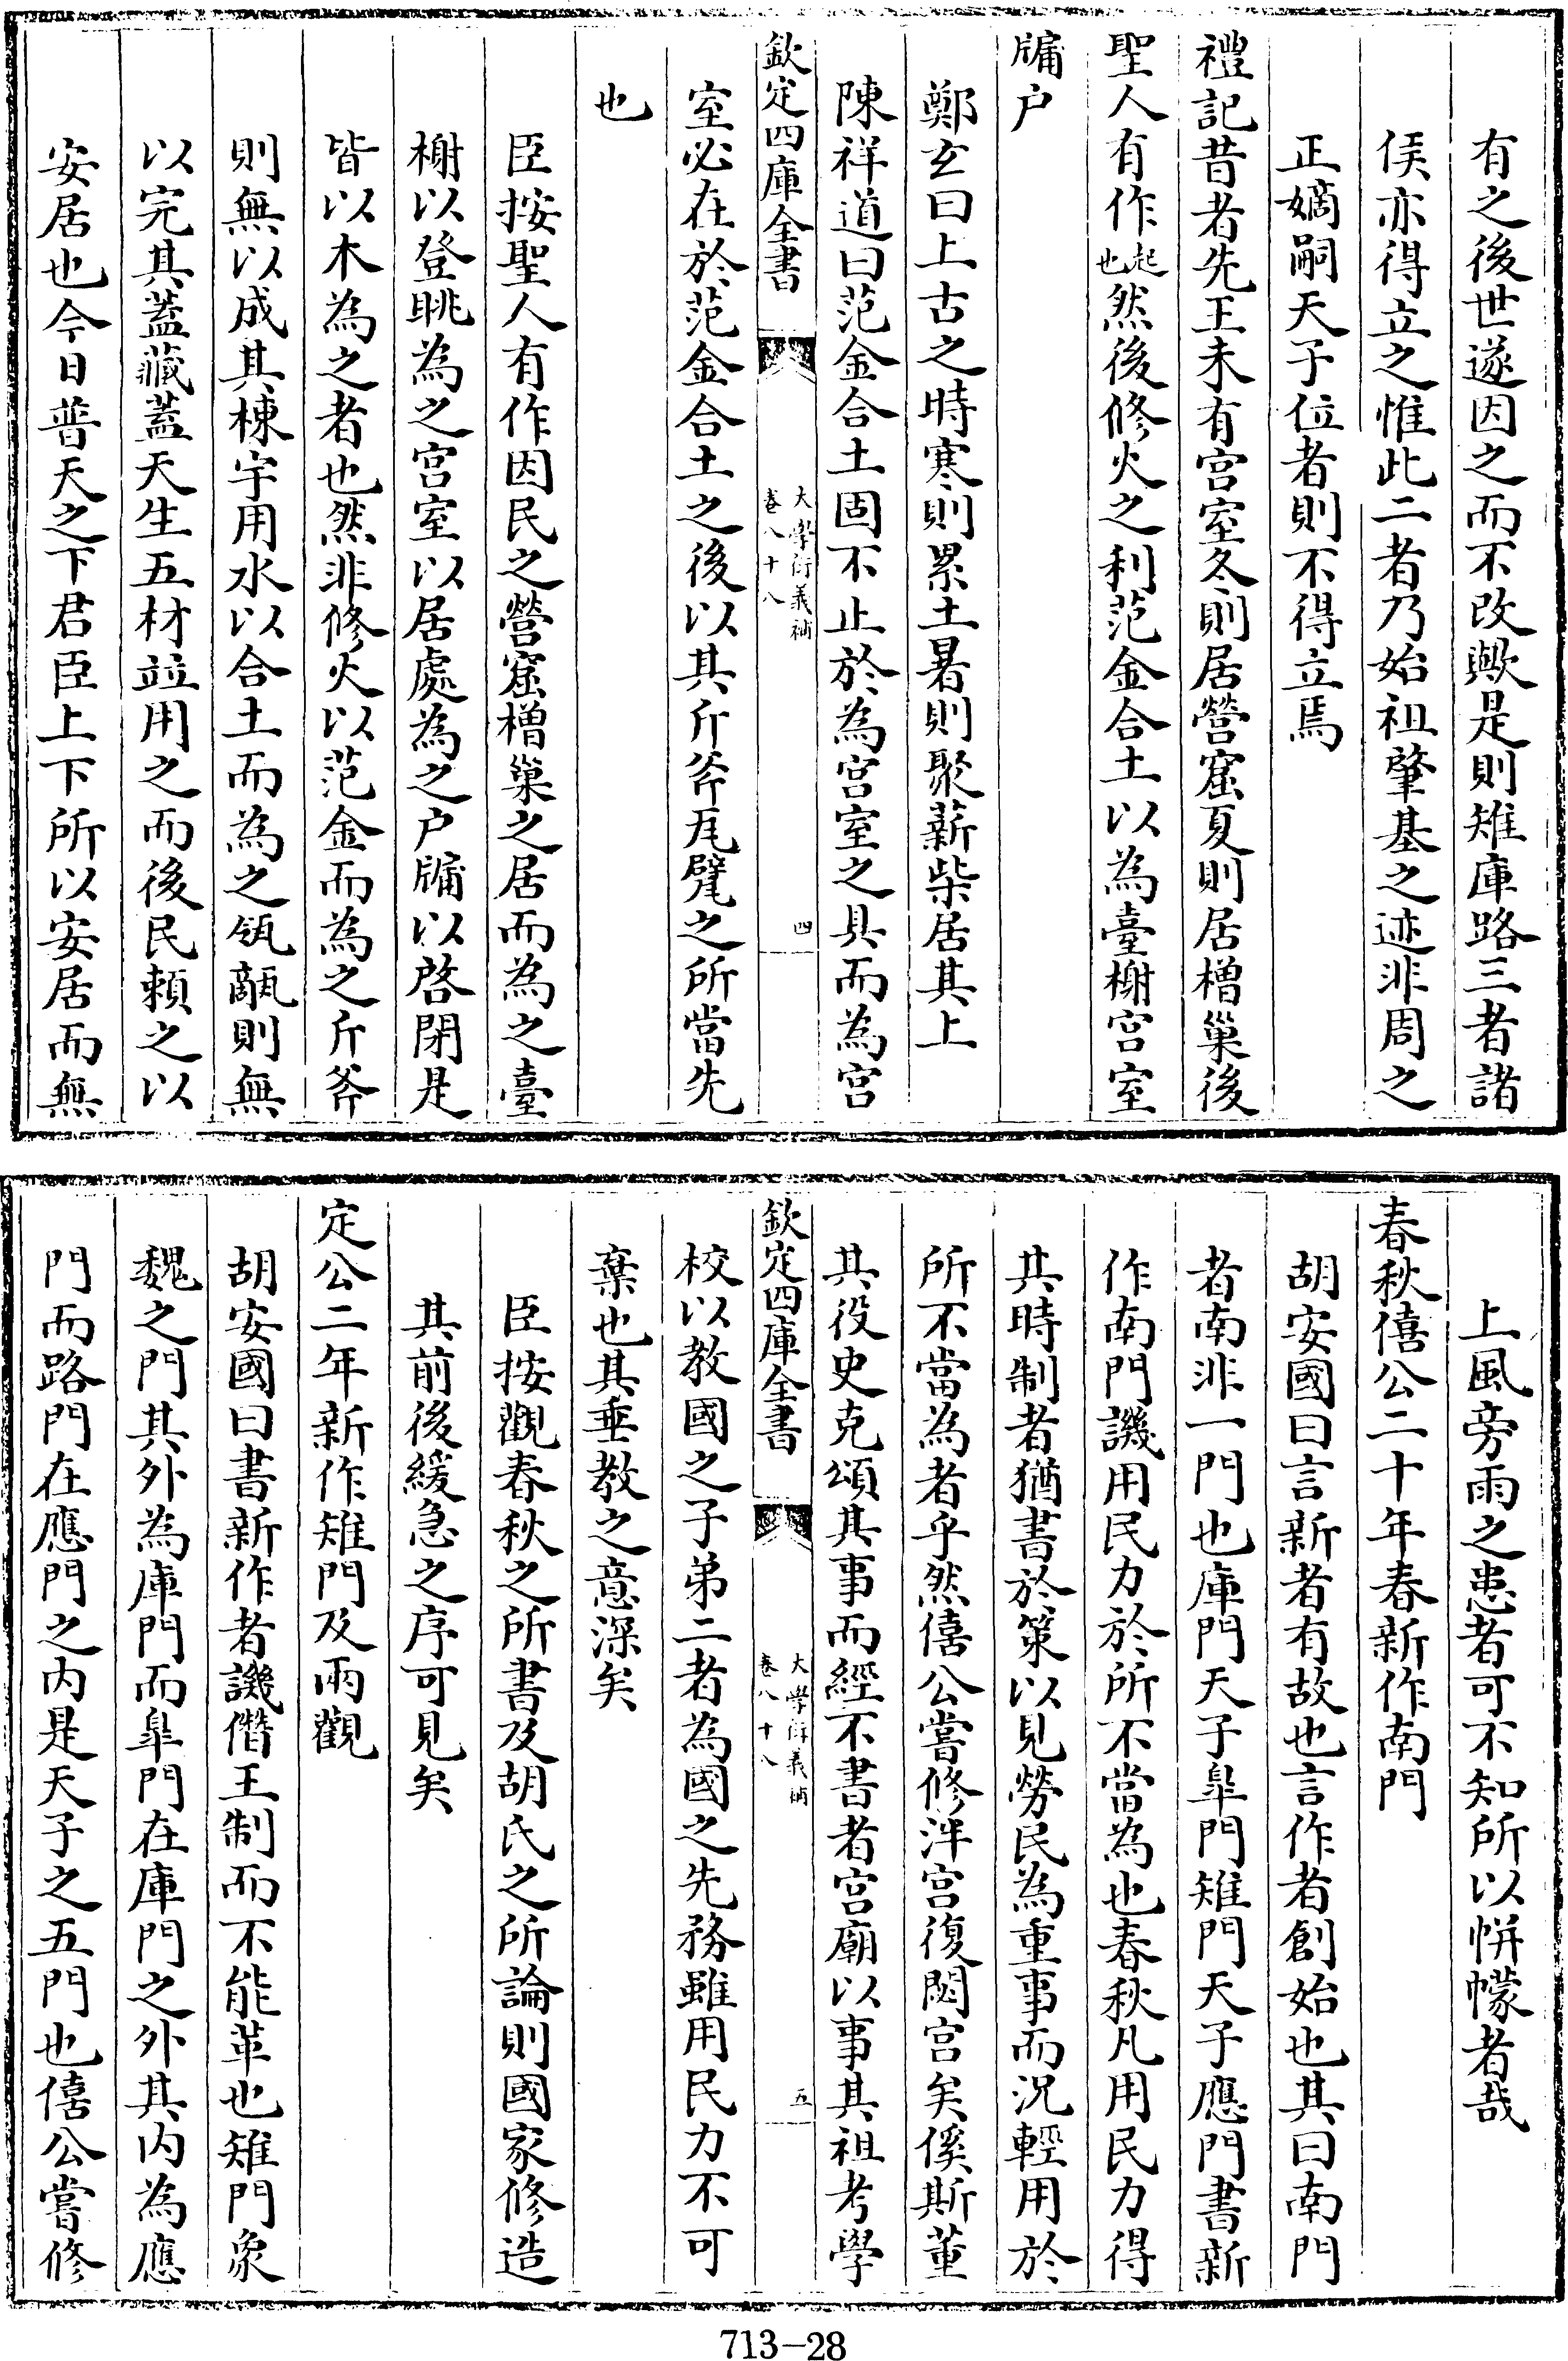 有之後世遂因之而不改歟是則雉庫路三者諸
侯亦得立之惟此二者乃始祖肇基之迹非周之
正嫡嗣天子位者則不得立焉
禮記昔者先王未有宫室冬則居營窟夏則居橧巢後
聖人有作起也然後修火之利范金合土以為臺榭宫室
牖户
鄭玄曰上古之時寒則累土暑則聚薪柴居其上
陳祥道曰范金合土固不止於為宫室之具而為宫
欽定四庫全書
大學衍義補
卷八十八
四
室必在於范金合土之後以其斤斧瓦甓之所當先
也
臣按聖人有作因民之營窟橧巢之居而為之臺
榭以登眺為之宫室以居處為之户牖以啓閉是
皆以木為之者也然非修火以范金而為之斤斧
則無以成其棟宇用水以合土而為之瓴甋則無
以完其蓋藏蓋天生五材竝用之而後民賴之以
安居也今日普天之下君臣上下所以安居而無
上風旁雨之患者可不知所以帡幪者哉
春秋僖公二十年春新作南門
胡安國曰言新者有故也言作者創始也其曰南門
者南非一門也庫門天子臯門雉門天子應門書新
作南門譏用民力於所不當為也春秋凡用民力得
其時制者猶書於策以見勞民為重事而況輕用於
所不當為者乎然僖公嘗修泮宫復閟宫矣傒斯董
其役史克頌其事而經不書者宫廟以事其祖考學
欽定四庫全書
大學衍義補
卷八十八
五
校以教國之子弟二者為國之先務雖用民力不可
棄也其垂教之意深矣
臣按觀春秋之所書及胡氏之所論則國家修造
其前後緩急之序可見矣
定公二年新作雉門及兩觀
胡安國曰書新作者譏僭王制而不能革也雉門象
魏之門其外為庫門而臯門在庫門之外其内為應
門而路門在應門之内是天子之五門也僖公嘗修
713-28